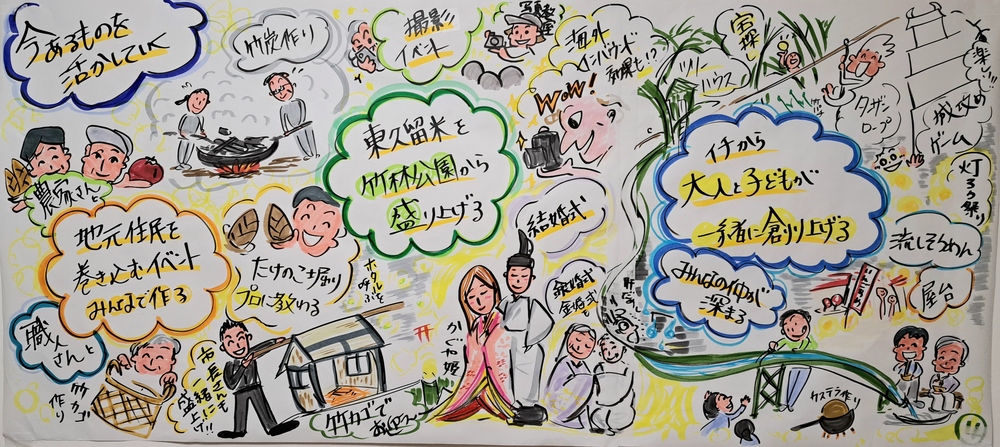 今あるものを
活かしていく
竹炭作り
撮影
イベント
写真教室
海外
インバウンド
効果も!?
WOW!
ツリー
ハウス
宝探し
ターザン
ロープ
城攻め
ゲーム
灯ろう祭り
農家さんと
地元住民を
巻き込むイベント
みんなで作る
職人
さんと
竹カゴ
作り
たけのこ掘り
プロに教わる
市長さんも
一緒に
盛上げ!!
東久留米を
竹林公園から
盛り上げる
結婚式
銀婚式
金婚式
かぐや姫
竹カゴで
イチから
大人と子どもが
一緒に創り上げる
みんなの仲が
深まる
流しそうめん
屋台
カステラ作り